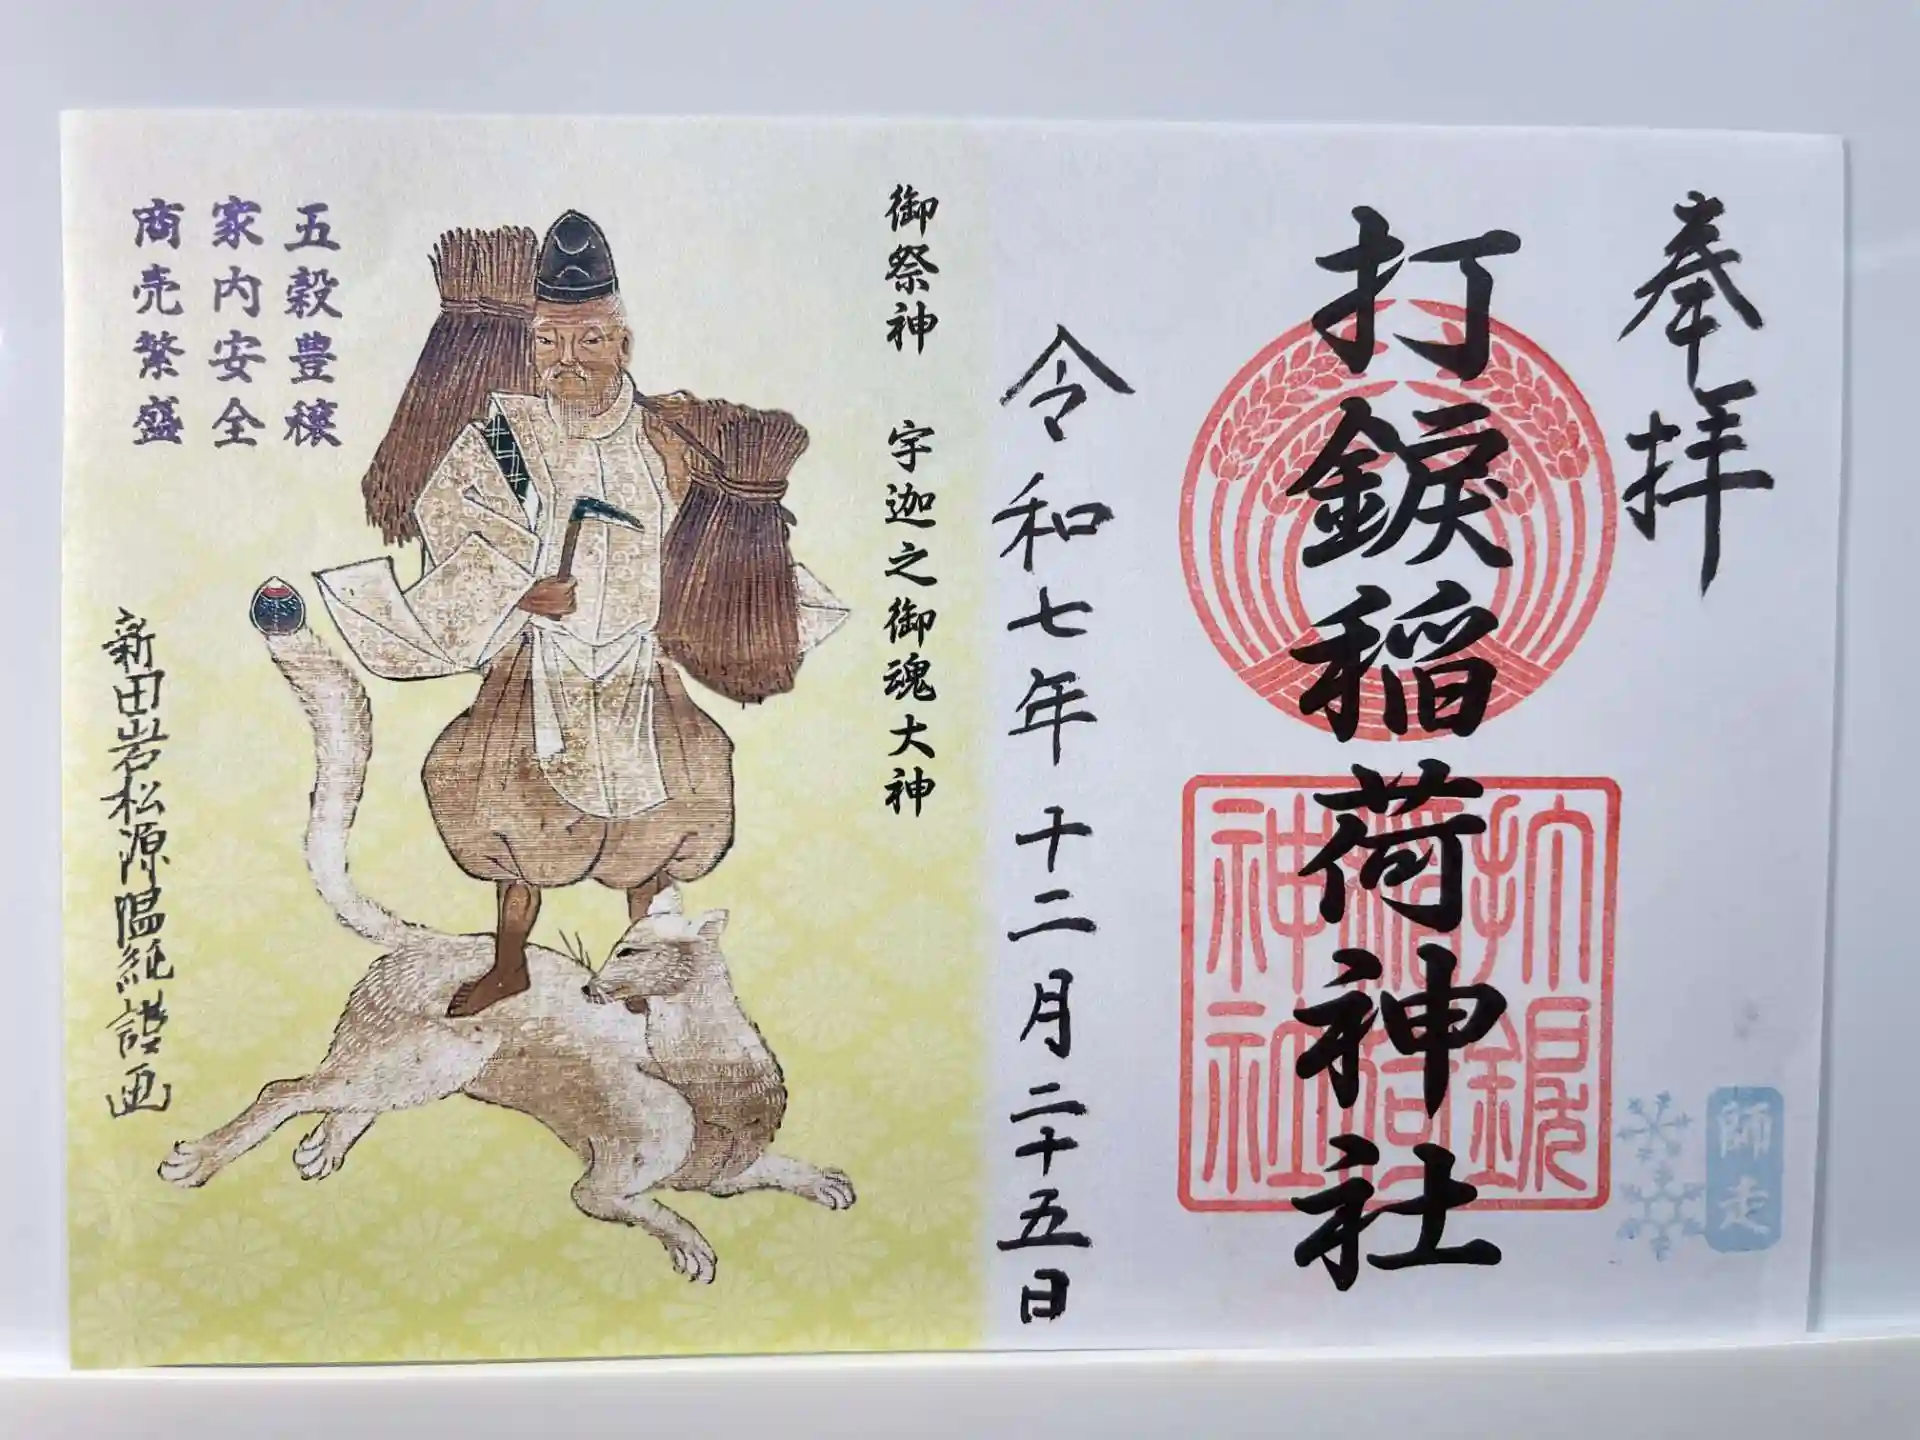 奉拝
打鎄稲荷神社
師走
令和七年十二月二十五日
御祭神 宇迦之御魂大神
五穀豊穣
家内安全
商売繁盛
新田岩松源温純謹画